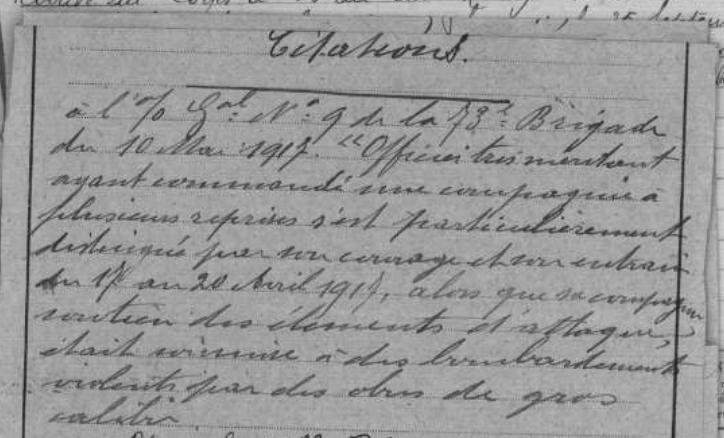 Citations.
à l'o/ Gal. No. 9 de la 73e Brigade
du 10 Mai 1917. "Officier très méritant
ayant commandé une compagnie à
plusieurs reprises s'est particulièrement
distingué par son courage et son entrain
du 17 au 20 Avril 1917, alors que sa compagnie
soutien des éléments d'attaque,
était soumise à des bombardements
violents par des obus de gros
calibre